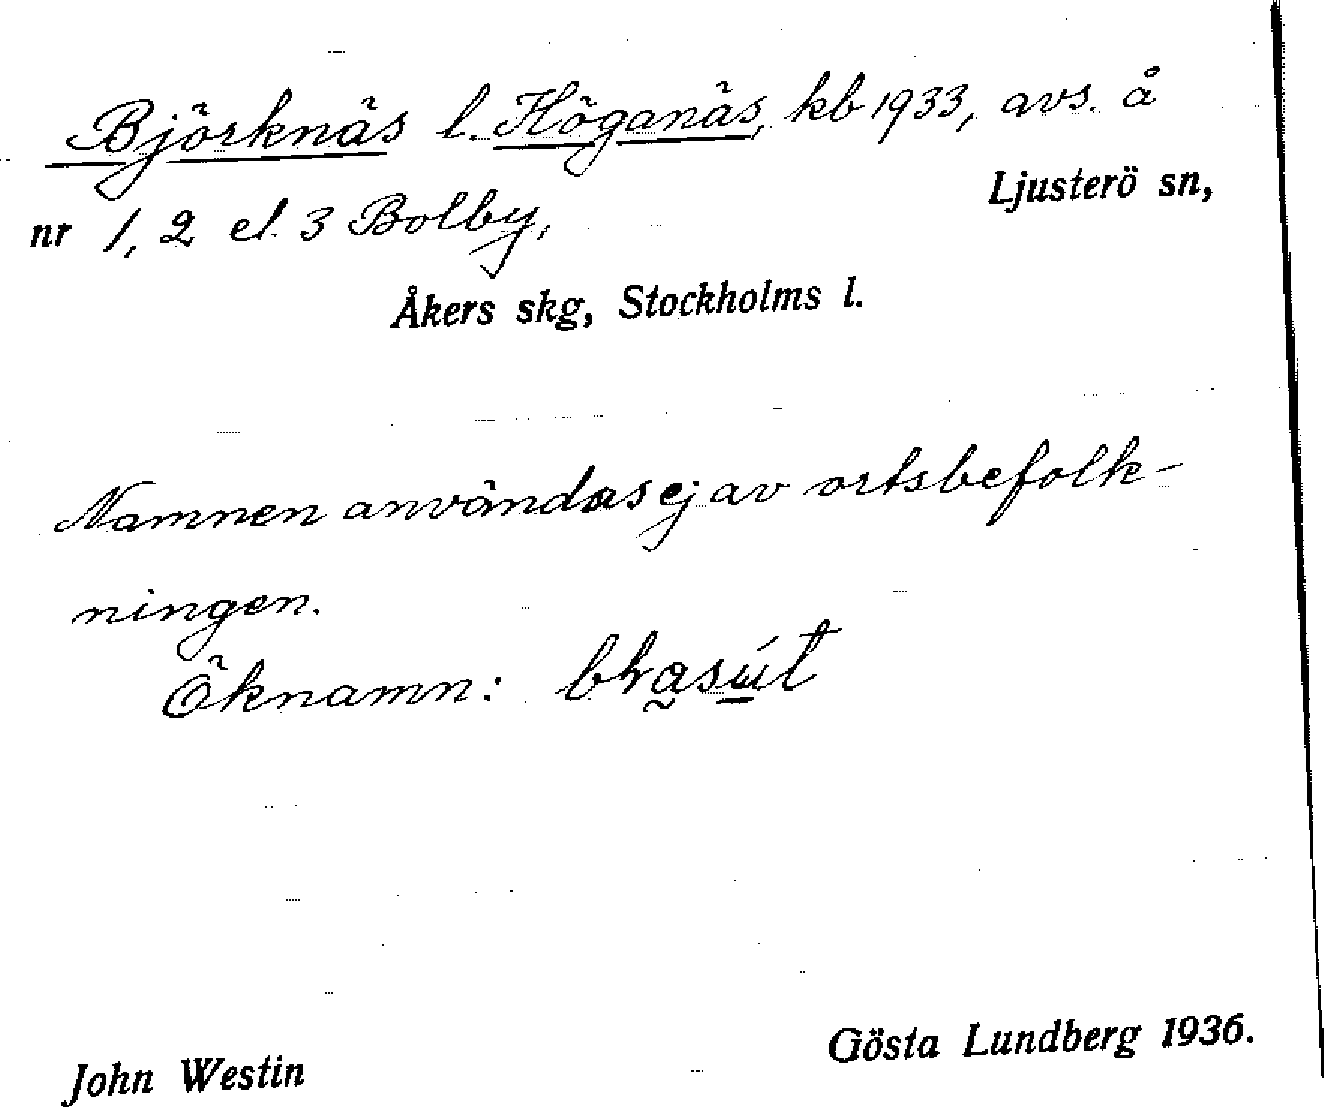 Björknäs l. Höganäs, kb 1933, avs. å
nr 1, 2 el. 3 Bolby, Ljusterö sn,
Åkers skg, Stockholms l.
Namnen användas ej av ortsbefolk-
ningen.
Öknamn:
John Westin Gösta Lundberg 1936.